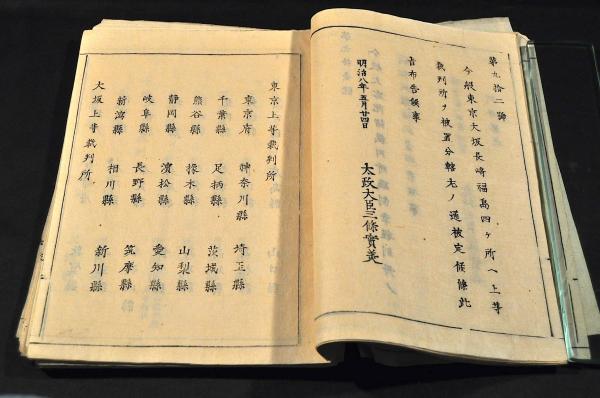 第九拾二號
今般東京大坂長崎福島四ヶ所ヘ上等
裁判所ヲ被置分轄左ノ通被定候條此
旨布告候事
明治八年五月廿四日
太政大臣三條實美
東京上等裁判所
東京府 神奈川縣 埼玉縣
千葉縣 足柄縣 茨城縣
熊谷縣 橡木縣 山梨縣
静岡縣 濱松縣 愛知縣
岐阜縣 長野縣 筑摩縣
新潟縣 相川縣 新川縣
大坂上等裁判所